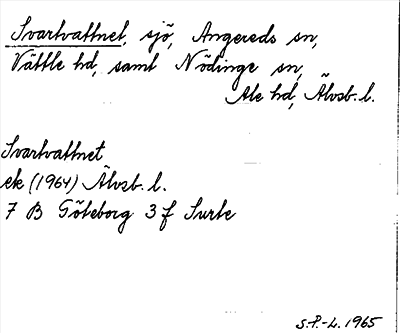 Svartvattnet, sjö, Angereds sn,
Vättle hd, samt Nödinge sn,
Ale hd, Älvsb. l.
Svartvattnet
ek (1964) Älvsb. l.
7 B Göteborg 3 f Surte
S.P.-L. 1965